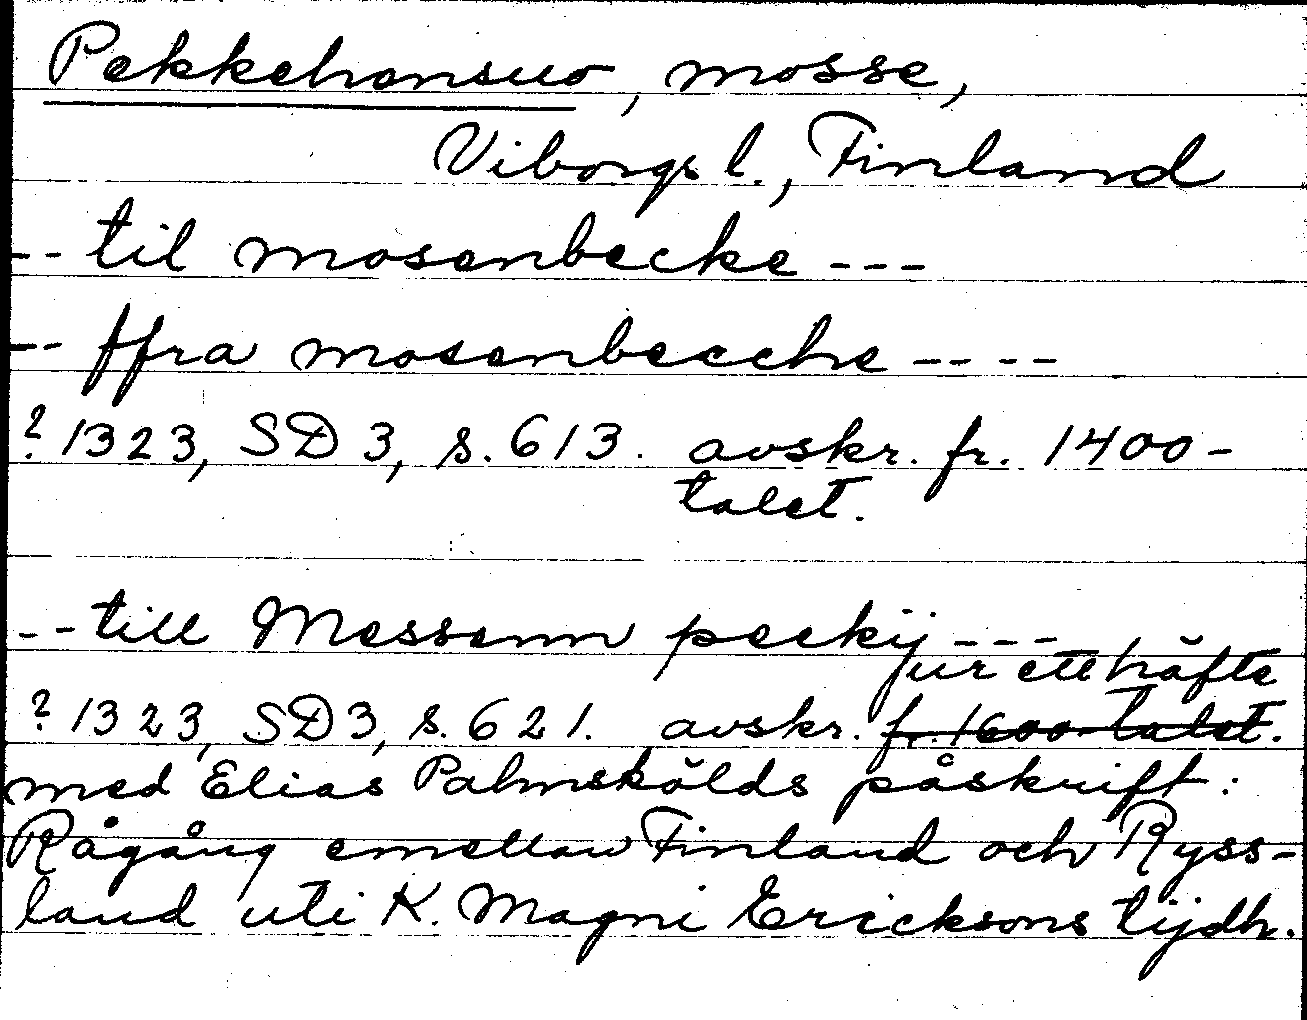 Pekkehonsuo, mosse,
Viborgs l., Finland
-- til mosenbecke ---
-- ffra mosenbecche ----
? 1323, SD 3, s. 613. avskr. fr. 1400-
talet.
-- till Messenn peckij ---
ur ett häfte
? 1323, SD 3, s. 621. avskr. fr. 1600-talet.
med Elias Palmskölds påskrift:
Rågång emellan Finland och Ryss-
land uti K. Magni Ericksons tijdh.